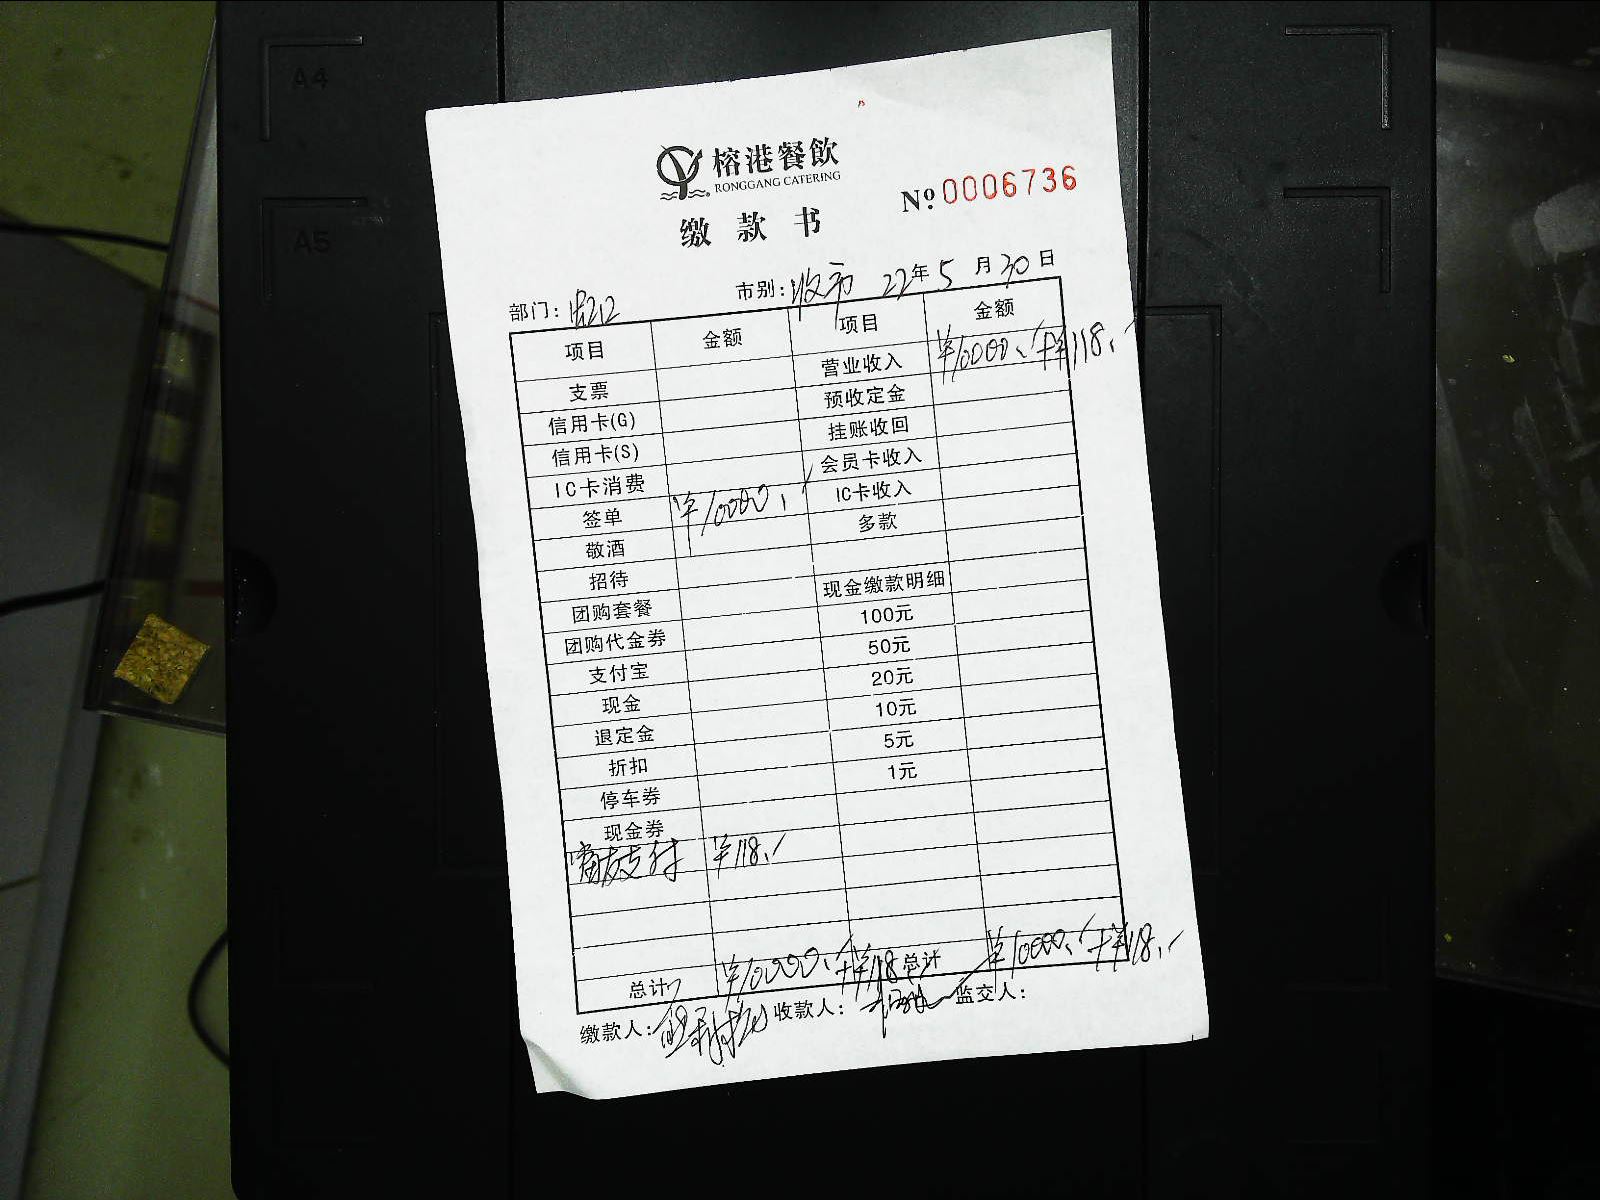 A4
A5
榕港餐飲
RONGGANG CATERING
№0006736
缴款书
部门： 市别：收市 22年5月30日
项目 金额 项目 金额
支票 营业收入 ¥10000、+¥118、
信用卡(G) 预收定金
信用卡(S) 挂账收回
IC卡消费 会员卡收入
签单 ¥10000、 IC卡收入
敬酒 多款
招待
团购套餐 现金缴款明细
团购代金券 100元
支付宝 50元
现金 20元
退定金 10元
折扣 5元
停车券 1元
现金券
支付 ¥118、
总计 ¥10000、+¥118 总计 ¥10000、+¥118、
缴款人： 收款人： 监交人：